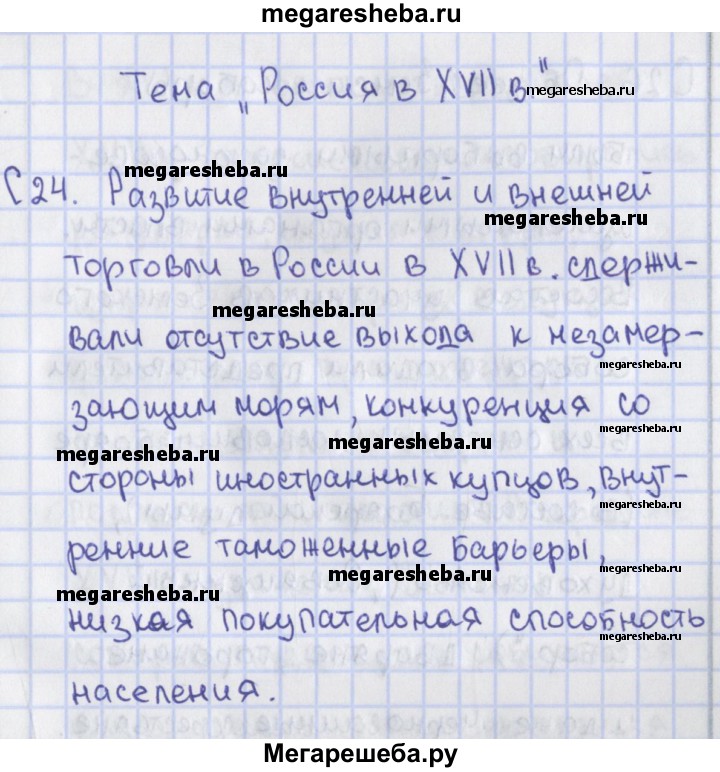 megaresheba.ru
Тема „Россия в XVII в."
megaresheba.ru
megaresheba.ru
С 24. Развитие внутренней и внешней
megaresheba.ru
торговли в России в XVII в. сдержи-
megaresheba.ru
вали отсутствие выхода к незамер-
megaresheba.ru
зающим морям, конкуренция со
megaresheba.ru
megaresheba.ru
стороны иностранных купцов, внут-
megaresheba.ru
ренние таможенные барьеры,
megaresheba.ru
megaresheba.ru
низкая покупательная способность
megaresheba.ru
населения.
Мегарешеба.ру